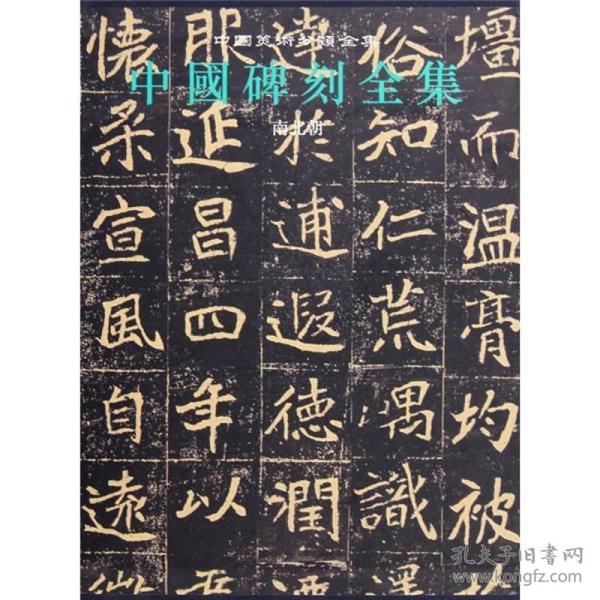 中國美術分類全集
中國碑刻全集
南北朝
壃而温膏均被
俗知仁荒嵎識
達於逋遐德潤
服延昌四年以
懷柔宣風自遠
孔夫子旧書网
www.kongfz.com